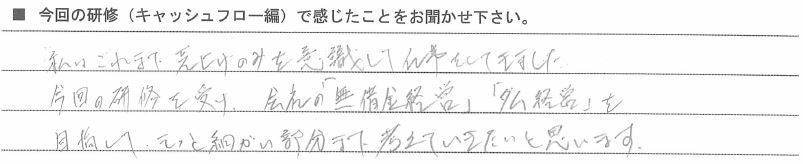 ■ 今回の研修（キャッシュフロー編）で感じたことをお聞かせ下さい。
私はこれまで売上げのみを意識して仕事をしてきました。
今回の研修を受け、会社の「無借金経営」「ダム経営」を
目指して、もっと細かい部分まで考えていきたいと思います。